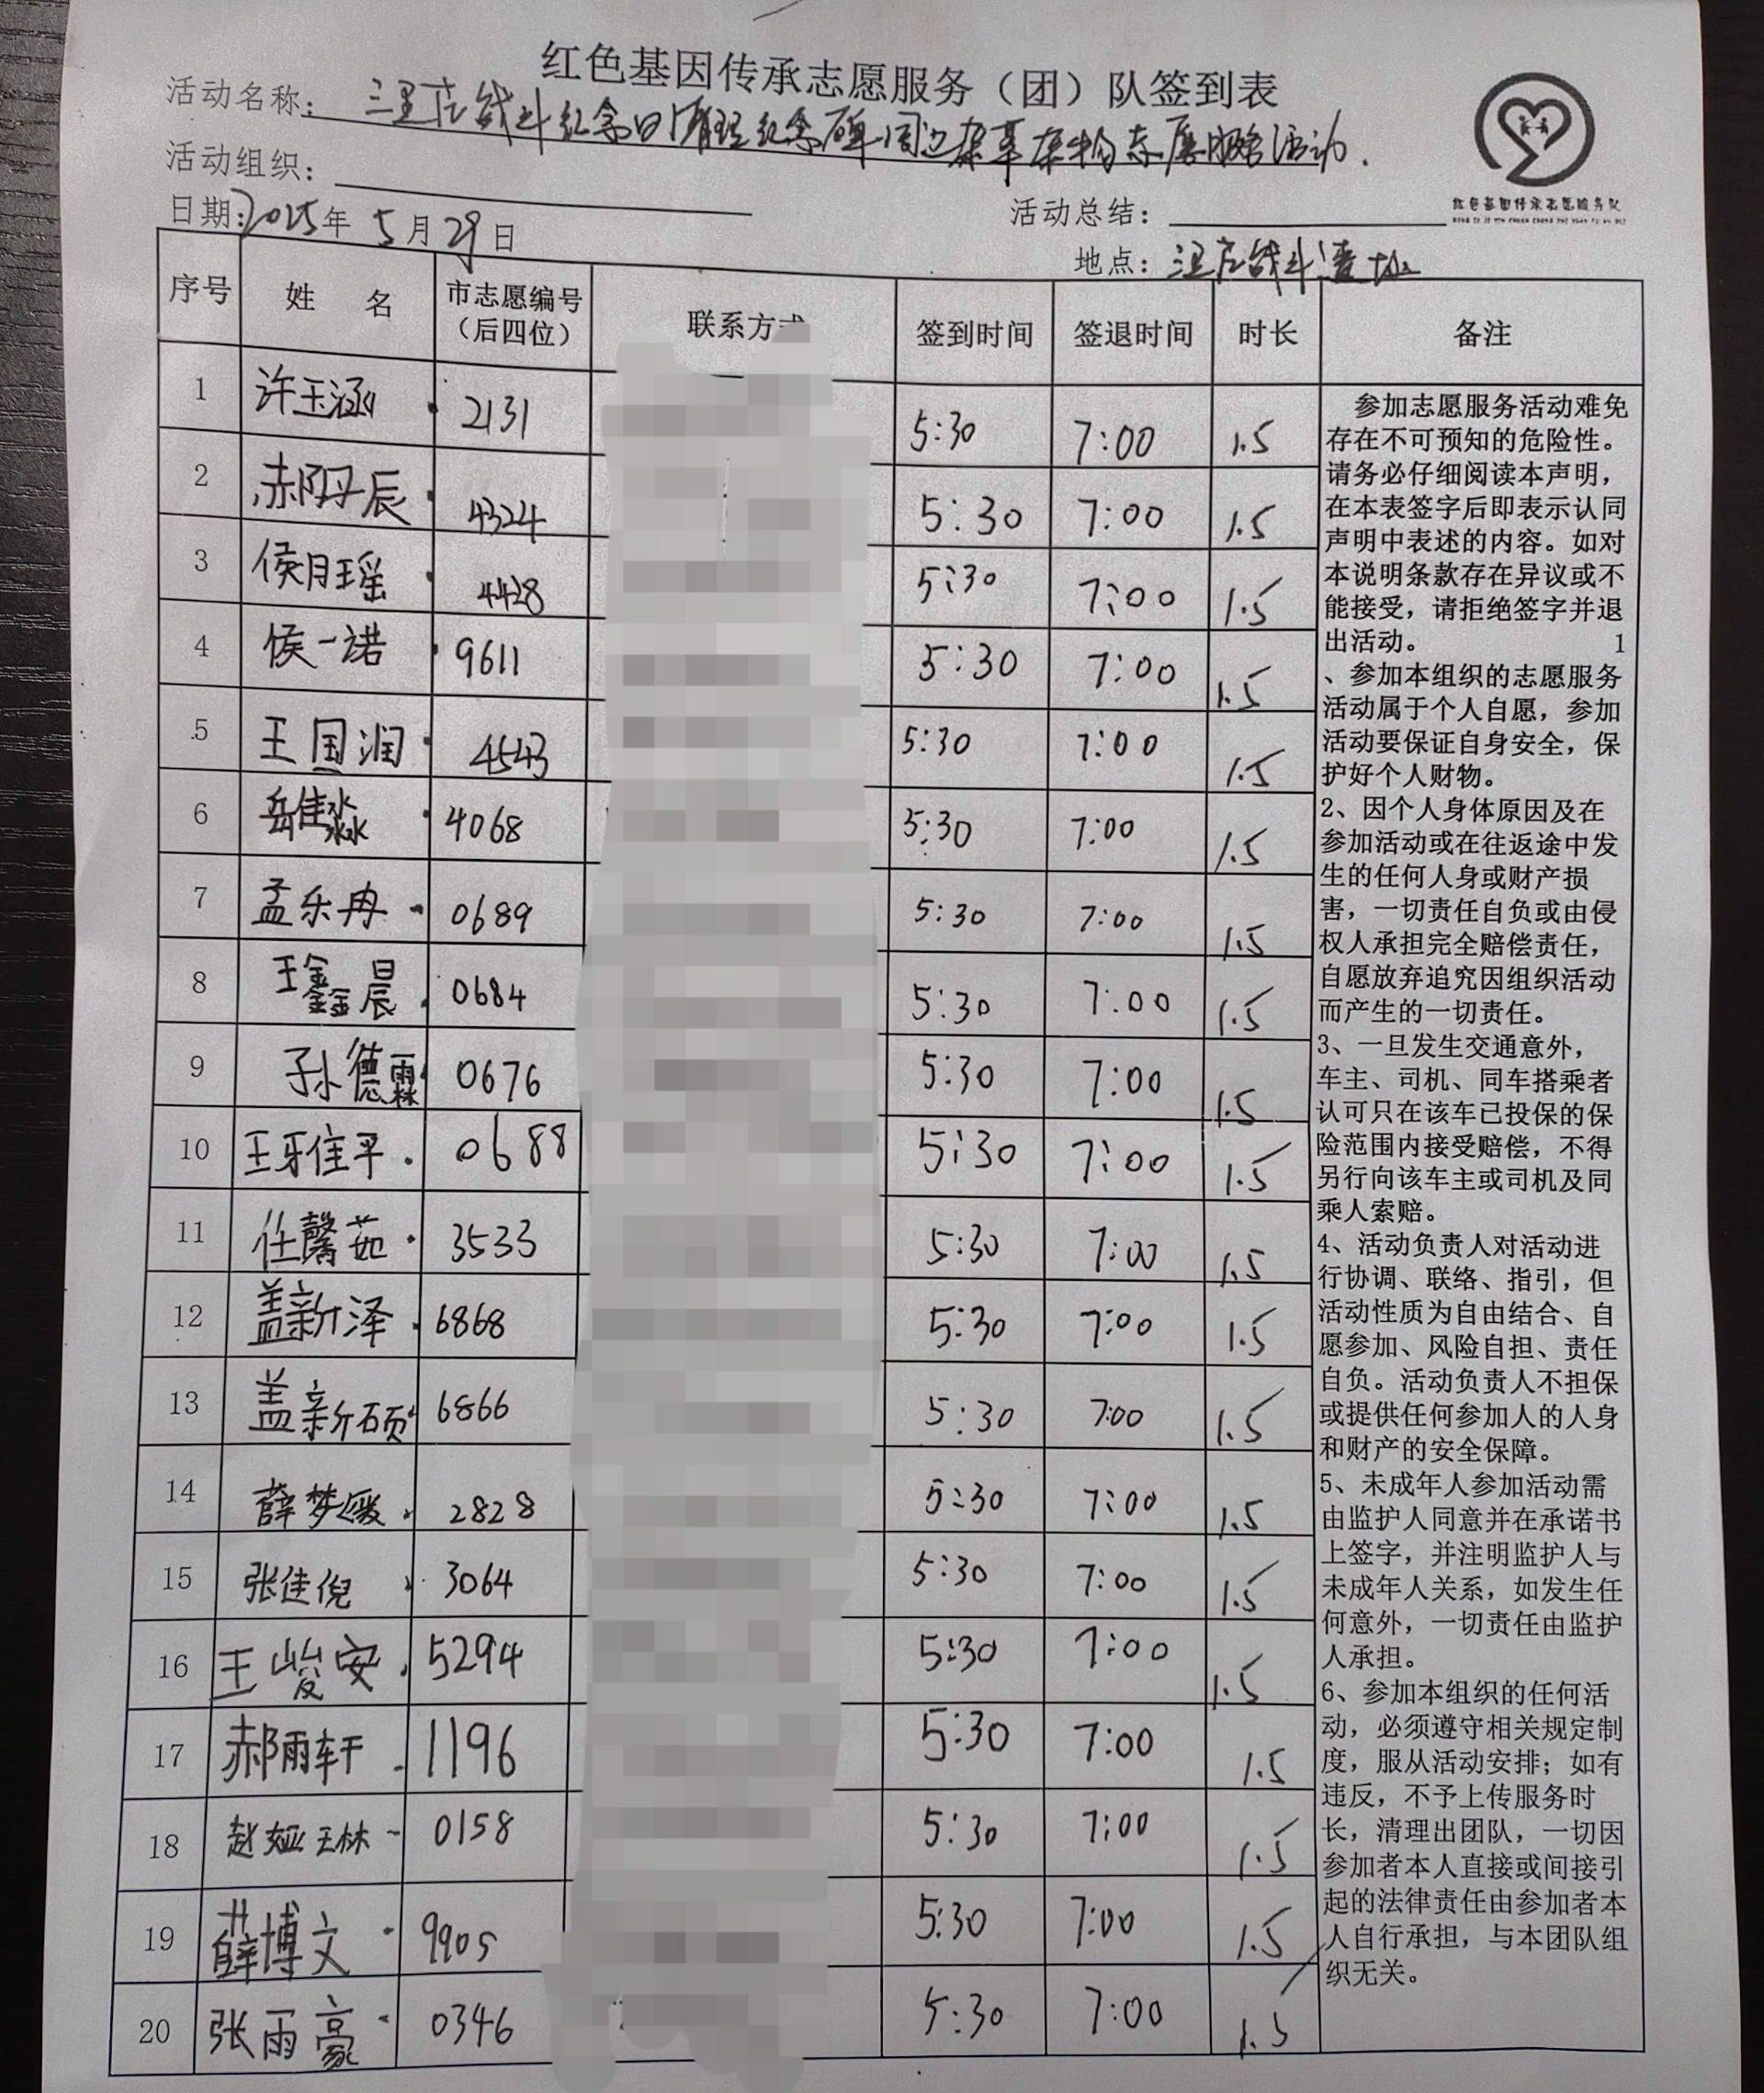 红色基因传承志愿服务（团）队签到表
活动名称：三里庄战斗纪念日清理纪念碑周边杂草杂物志愿服务活动.
活动组织：
日期：2025年 5月29日
活动总结：
地点：三里庄战斗遗址
红色基因传承志愿服务队
序号 姓 名 市志愿编号（后四位） 联系方式 签到时间 签退时间 时长 备注
1 许玉涵 2131 5:30 7:00 1.5
2 郝丹辰 4324 5:30 7:00 1.5
3 侯月瑶 4428 5:30 7:00 1.5
4 侯一诺 9611 5:30 7:00 1.5
5 王国润 4543 5:30 7:00 1.5
6 岳佳淼 4068 5:30 7:00 1.5
7 孟乐冉 0689 5:30 7:00 1.5
8 王鑫晨 0684 5:30 7:00 1.5
9 孙德霖 0676 5:30 7:00 1.5
10 王雅平 0688 5:30 7:00 1.5
11 任馨茹 3533 5:30 7:00 1.5
12 盖新泽 6868 5:30 7:00 1.5
13 盖新硕 6866 5:30 7:00 1.5
14 薛梦媛 2828 5:30 7:00 1.5
15 张佳倪 3064 5:30 7:00 1.5
16 王峻安 5294 5:30 7:00 1.5
17 郝雨轩 1196 5:30 7:00 1.5
18 赵娅琳 0158 5:30 7:00 1.5
19 薛博文 9905 5:30 7:00 1.5
20 张雨豪 0346 5:30 7:00 1.5
参加志愿服务活动难免
存在不可预知的危险性。
请务必仔细阅读本声明，
在本表签字后即表示认同
声明中表述的内容。如对
本说明条款存在异议或不
能接受，请拒绝签字并退
出活动。 1
、参加本组织的志愿服务
活动属于个人自愿，参加
活动要保证自身安全，保
护好个人财物。
2、因个人身体原因及在
参加活动或在往返途中发
生的任何人身或财产损
害，一切责任自负或由侵
权人承担完全赔偿责任，
自愿放弃追究因组织活动
而产生的一切责任。
3、一旦发生交通意外，
车主、司机、同车搭乘者
认可只在该车已投保的保
险范围内接受赔偿，不得
另行向该车主或司机及同
乘人索赔。
4、活动负责人对活动进
行协调、联络、指引，但
活动性质为自由结合、自
愿参加、风险自担、责任
自负。活动负责人不担保
或提供任何参加人的人身
和财产的安全保障。
5、未成年人参加活动需
由监护人同意并在承诺书
上签字，并注明监护人与
未成年人关系，如发生任
何意外，一切责任由监护
人承担。
6、参加本组织的任何活
动，必须遵守相关规定制
度，服从活动安排；如有
违反，不予上传服务时
长，清理出团队，一切因
参加者本人直接或间接引
起的法律责任由参加者本
人自行承担，与本团队组
织无关。